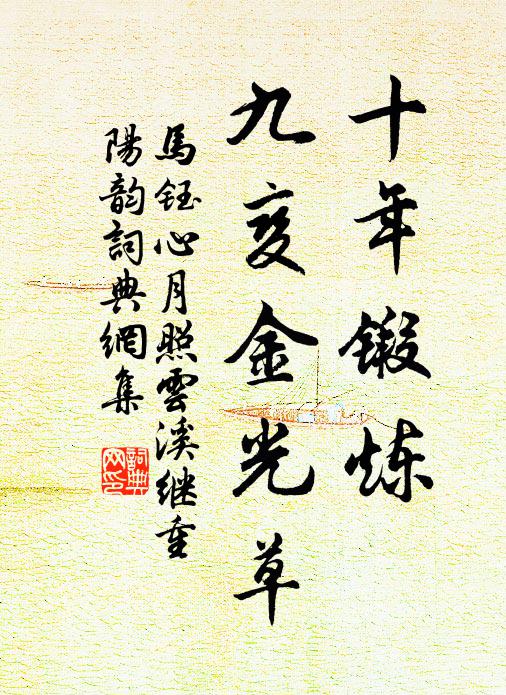 十年锻炼
九变金光草
馬钰心月照雲溪继重
陽韵詞典網集
詞典网印